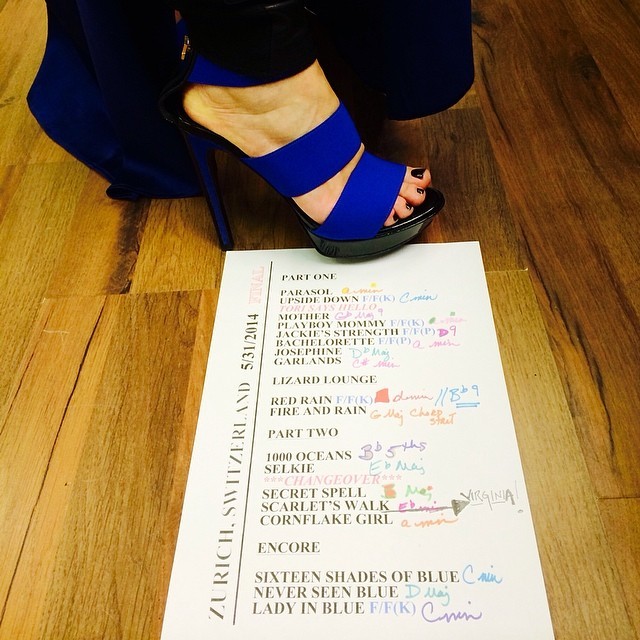 ZURICH, SWITZERLAND 5/31/2014 FINAL
PART ONE
PARASOL a min
UPSIDE DOWN F/F(K) C min
TORI SAYS HELLO
MOTHER Gb Maj 9
PLAYBOY MOMMY F/F(K)
JACKIE'S STRENGTH F/F(P) D9
BACHELORETTE F/F(P) a min
JOSEPHINE Db Maj
GARLANDS C# min
LIZARD LOUNGE
RED RAIN F/F(K) dmin //Bb9
FIRE AND RAIN G Maj Cheap
street
PART TWO
1000 OCEANS Bb 5ths
SELKIE Eb Maj
***CHANGEOVER***
SECRET SPELL E Maj
SCARLET'S WALK Eb min VIRGINIA!
CORNFLAKE GIRL a min
ENCORE
SIXTEEN SHADES OF BLUE C min
NEVER SEEN BLUE D Maj
LADY IN BLUE F/F(K) C min